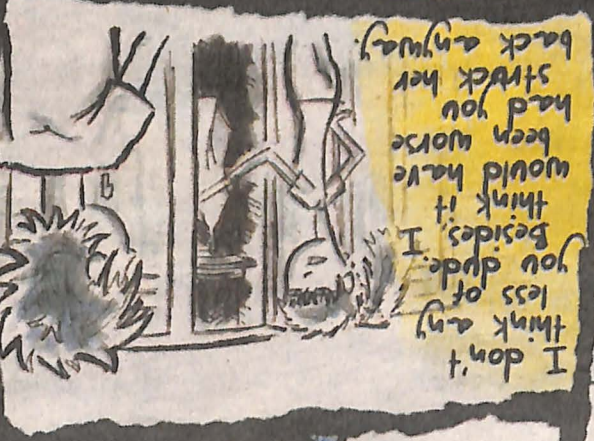 I don't
think any
less of
you dude.
Besides, I
think it
would have
been worse
had you
struck her
back anyway.